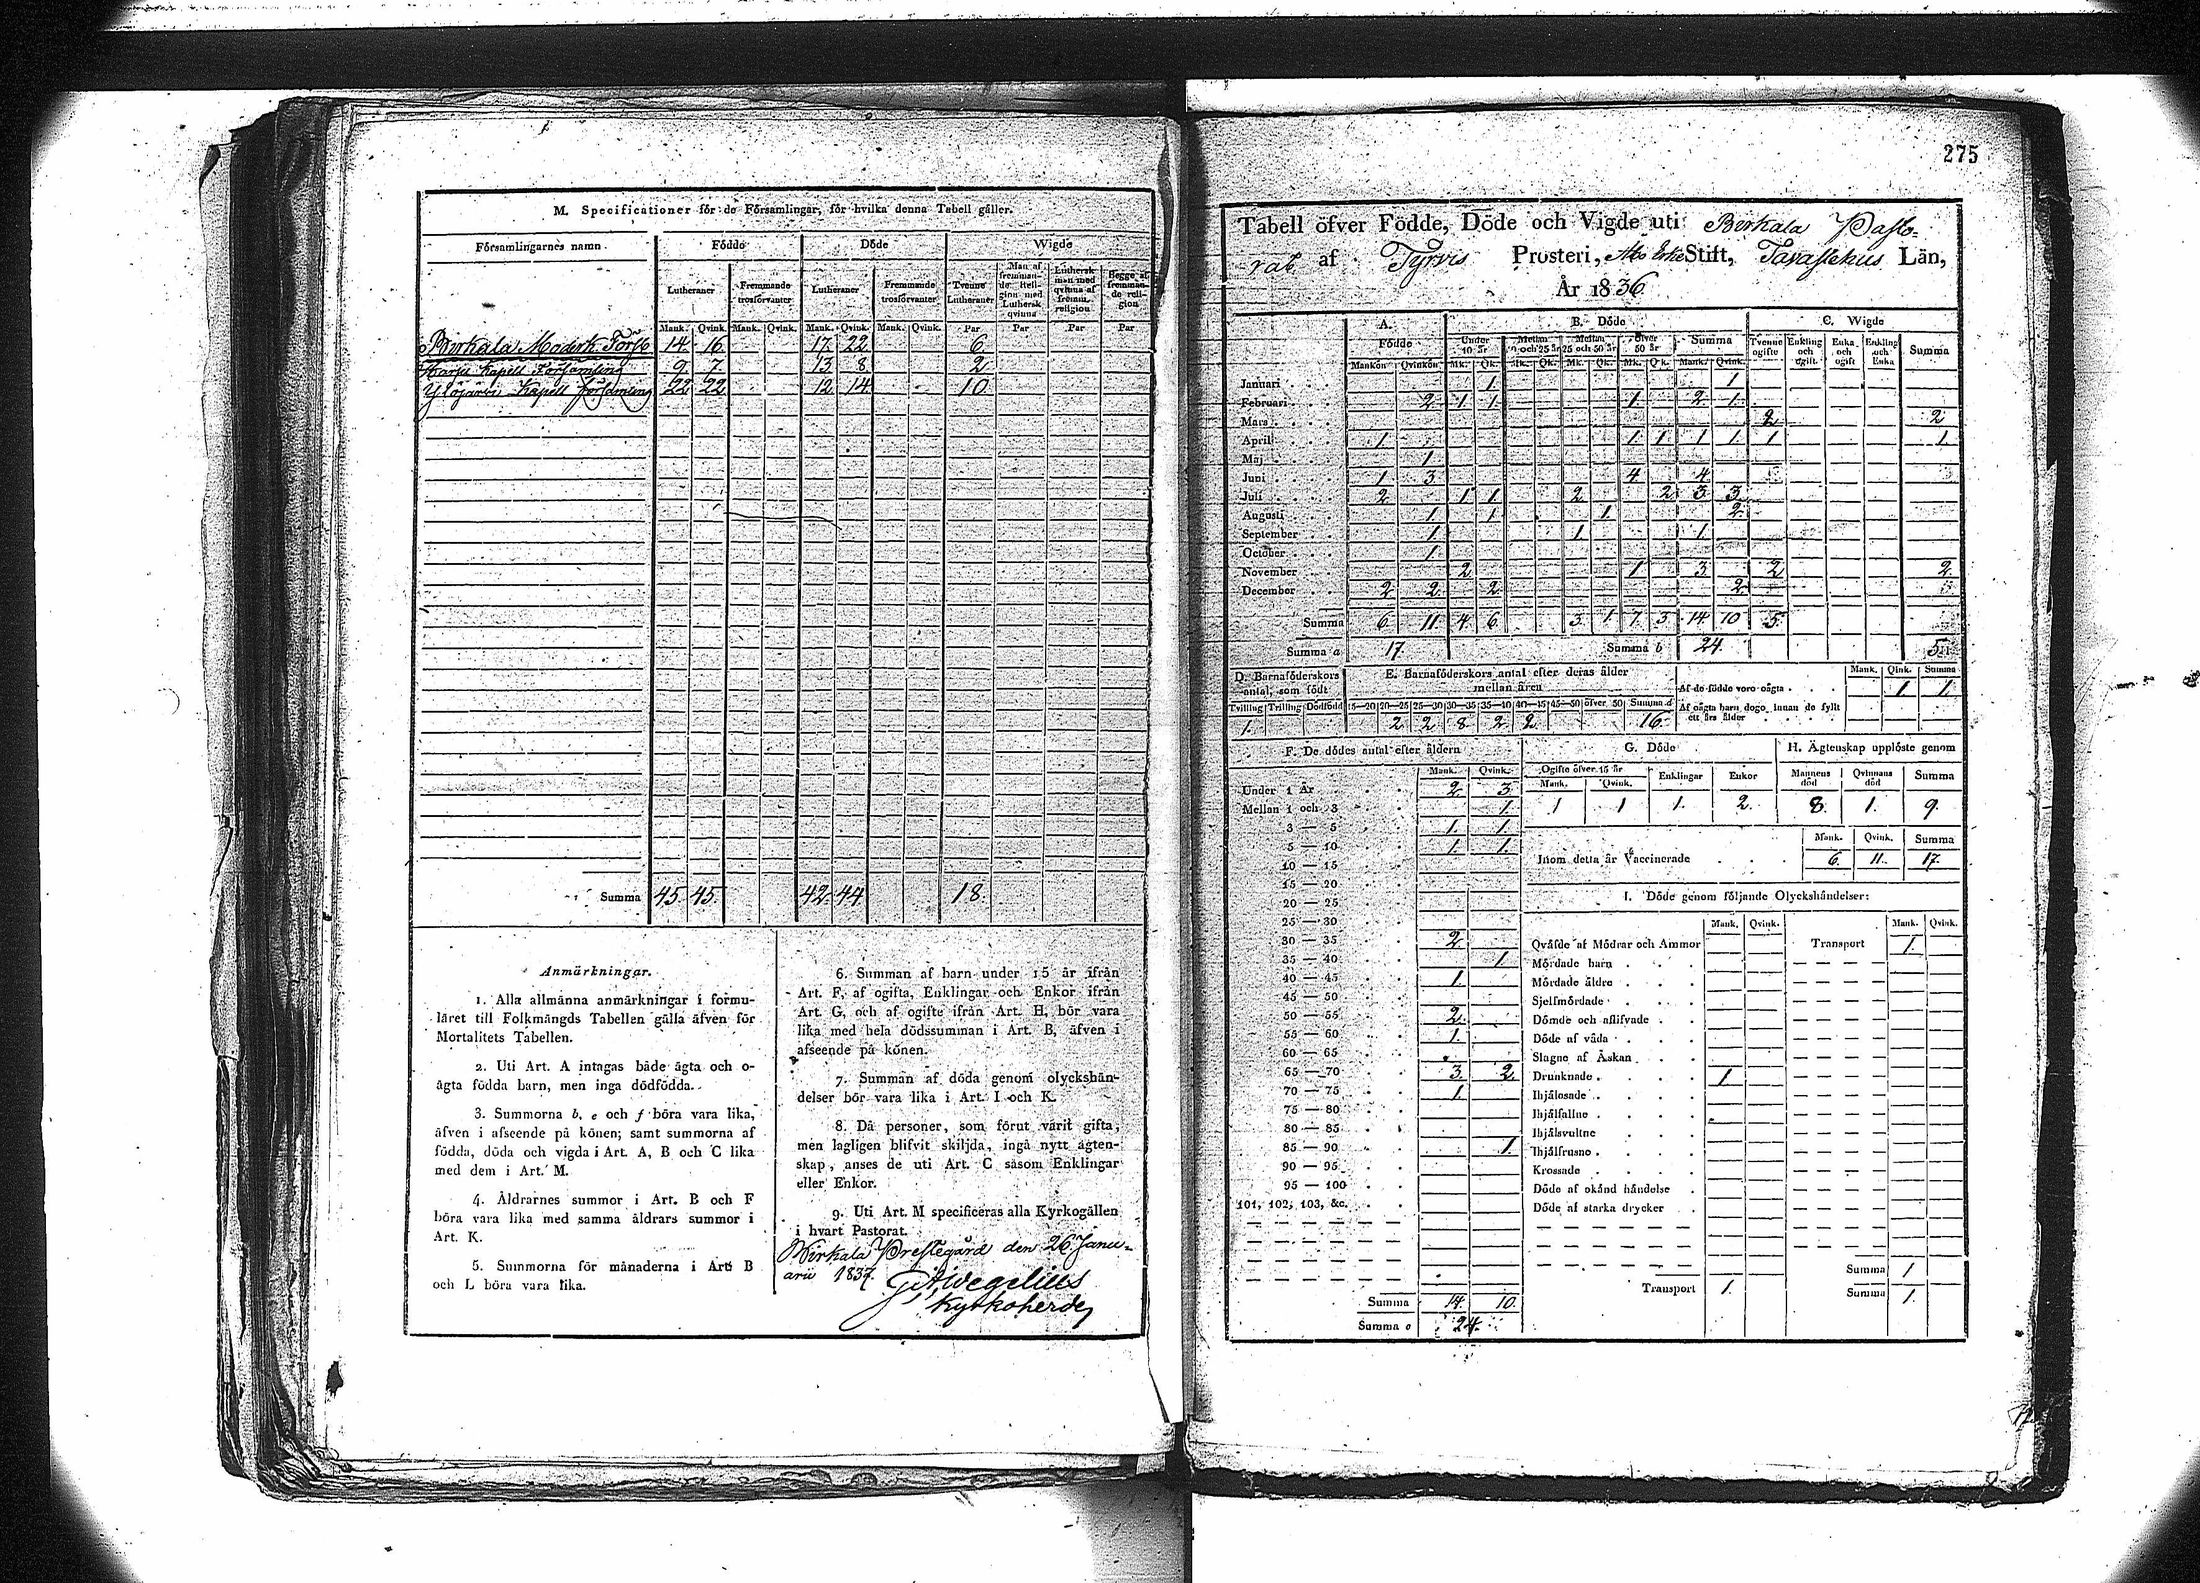 M. Specificationer för de Församlingar, för hvilka denna Tabell gäller.
Församlingarnes namn.
Födde
Döde
Wigde
Lutheraner
Fremmande trosförvanter
Lutheraner
Fremmande trosförvanter
Tvenne Lutheraner
Man af fremmande Religion med Luthersk qvinna
Luthersk man med qvinna af fremm. religion
Begge af fremmande religion
Mank. Qvink. Mank. Qvink. Mank. Qvink. Mank. Qvink. Par Par Par Par
Birkala Moderk. Förs. 14. 16. 17. 22. 6.
Kapell Församling 9. 7. 13. 8. 2.
Ylöjärvi Kapell församling 22 22 12 14 10.
Summa 45. 45. 42. 44 18.
Anmärkningar.
1. Alla allmänna anmärkningar i formu-
läret till Folkmängds Tabellen gälla äfven för
Mortalitets Tabellen.
2. Uti Art. A intagas både ägta och o-
ägta födda barn, men inga dödfödda.
3. Summorna b, e och f böra vara lika,
äfven i afseende på könen; samt summorna af
födda, döda och vigda i Art. A, B och C lika
med dem i Art. M.
4. Åldrarnes summor i Art. B och F
böra vara lika med samma åldrars summor i
Art. K.
5. Summorna för månaderna i Art. B
och L böra vara lika.
6. Summan af barn under 15 år ifrån
Art. F, af ogifta, Enklingar och Enkor ifrån
Art. G, och af ogifte ifrån Art. H, bör vara
lika med hela dödssumman i Art. B, äfven i
afseende på könen.
7. Summan af döda genom olyckshän-
delser bör vara lika i Art. I och K.
8. Då personer, som förut varit gifta,
men lagligen blifvit skiljda, ingå nytt ägten-
skap, anses de uti Art. C såsom Enklingar
eller Enkor.
9. Uti Art. M specificeras alla Kyrkogällen
i hvart Pastorat.
Birkala Prestegård den 26 Janu-
arii 1837.
Kyrkoherde
275
Tabell öfver Födde, Döde och Vigde uti Birkala Pasto-
rat af Tyrvis Prosteri, Åbo Erke Stift, Tavastehus Län,
År 1836.
A. Födde
B. Döde
C. Wigde
Under 10 år
Mellan 10 och 25 år
Mellan 25 och 50 år
Öfver 50 år
Summa
Tvenne ogifte
Enkling och ogift.
Enka och ogift
Enkling och Enka
Summa
Mankön Qvinkön Mk. Qk. Mk. Qk. Mk. Qk. Mk. Qk. Mank. Qvink.
Januari 1 1
Februari 2 1 1 1 2 1
Mars 2 2
April 1 1 1 1 1 1 1
Maj 1
Juni 1 3 4 4
Juli 2 1 1 2 2 3 3
Augusti 1 1 1 2
September 1 1 1
October 1
November 2 1 3 2 2
December 2 2 2 2
Summa 6 11 4 6 3 1 7 3 14 10 5
Summa a 17. Summa b 24. 5
D. Barnaföderskors antal, som födt
E. Barnaföderskors antal efter deras ålder mellan åren
Mank. Qink. Summa
Af de födde voro oägta 1 1
Af oägta barn dogo innan de fyllt ett års ålder
Tvilling Trilling Dödfödd 15—20 20—25 25—30 30—35 35—40 40—45 45—50 öfver 50 Summa d
1. 2 2 8 2 2 16
F. De dödes antal efter åldern
Mank. Qvink.
Under 1 År 2. 3.
Mellan 1 och 3 1.
3 — 5 1. 1.
5 — 10 1. 1.
10 — 15
15 — 20
20 — 25
25 — 30
30 — 35 2.
35 — 40 1
40 — 45 1.
45 — 50
50 — 55 2.
55 — 60 1.
60 — 65
65 — 70 3. 2.
70 — 75 1
75 — 80
80 — 85
85 — 90 1.
90 — 95
95 — 100
101, 102, 103, &c.
Summa 14. 10.
Summa e 24.
G. Döde
Ogifte öfver 15 år
Mank. Qvink.
Enklingar
Enkor
1 1 1. 2.
H. Ägtenskap upplöste genom
Mannens död
Qvinnans död
Summa
8. 1. 9.
Mank. Qvink. Summa
Inom detta år Vaccinerade 6. 11. 17.
I. Döde genom följande Olyckshändelser:
Mank. Qvink. Mank. Qvink.
Qväfde af Mödrar och Ammor Transport 1.
Mördade barn
Mördade äldre
Sjelfmördade
Dömde och aflifvade
Döde af våda
Slagne af Åskan
Drunknade 1
Ihjälosade
Ihjälfallne
Ihjälsvultne
Ihjälfrusne
Krossade
Döde af okänd händelse
Döde af starka drycker
Summa 1
Transport 1. Summa 1.